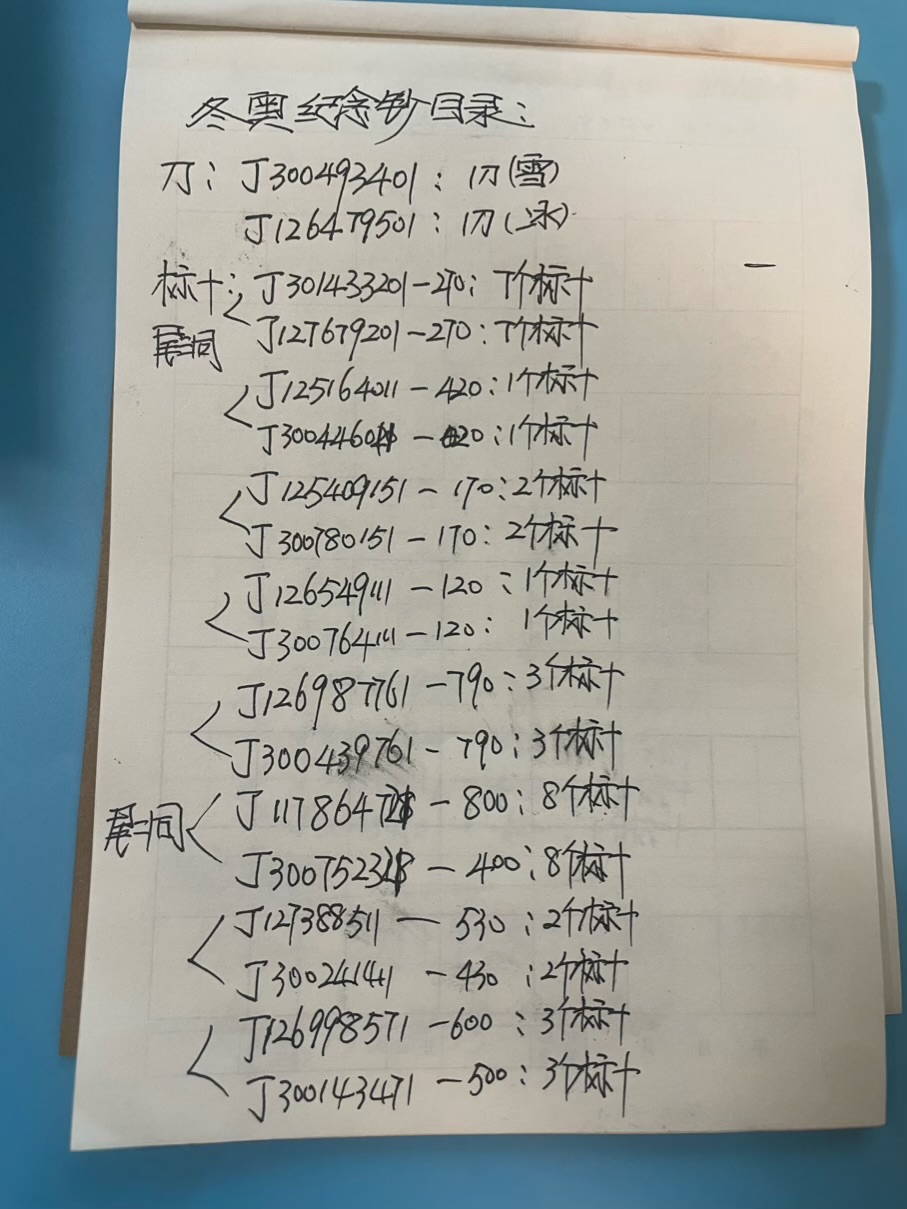 冬奥纪念钞目录：
刀：J300493401：1刀(雪)
J126479501：1刀(冰)
标十：J301433201-270：7个标十
尾同 J127679201-270：7个标十
J125164011-420：1个标十
-420：1个标十
J125409151-170：2个标十
J300780151-170：2个标十
J126549111-120：1个标十
J300764111-120：1个标十
J126987761-790：3个标十
J300439761-790：3个标十
尾二同 -800：8个标十
-400：8个标十
J127388511-530：2个标十
-430：2个标十
J126998571-600：3个标十
J300143471-500：3个标十